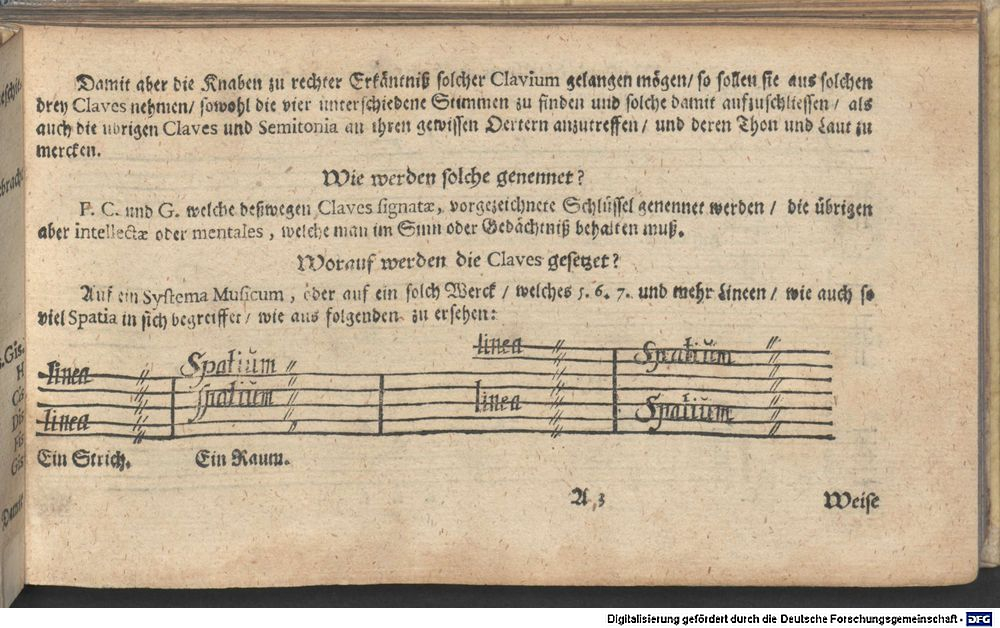 Damit aber die Knaben zu rechter Erkäntniß solcher Clavium gelangen mögen/ so sollen sie aus solchen
drey Claves nehmen/ sowohl die vier unterschiedene Stimmen zu finden und solche damit aufzuschliessen/ als
auch die übrigen Claves und Semitonia an ihren gewissen Oertern anzutreffen/ und deren Thon und Laut zu
mercken.
Wie werden solche genennet?
F. C. und G. welche deßwegen Claves signatæ, vorgezeichnete Schlüssel genennet werden/ die übrigen
aber intellectæ oder mentales, welche man im Sinn oder Gedächtniß behalten muß.
Worauf werden die Claves gesetzet?
Auf ein Systema Musicum, oder auf ein solch Werck/ welches 5. 6. 7. und mehr Lineen/ wie auch so
viel Spatia in sich begreiffet/ wie aus folgenden zu ersehen:
linea Spatium linea Spatium
linea spatium linea Spatium
Ein Strich. Ein Raum.
A 3 Weise
Gis.
H
Cis
Dis
Fis
Gis
Damit
Digitalisierung gefördert durch die Deutsche Forschungsgemeinschaft - DFG